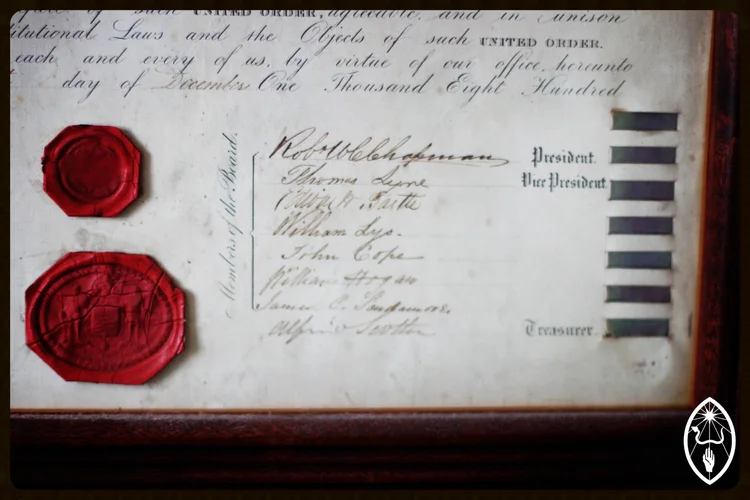 of such UNITED ORDER, agreeable, and in unison
Laws and the Objects of such UNITED ORDER.
each and every of us, by virtue of our office, hereunto
day of December One Thousand Eight Hundred
Members of the Board.
Chapman President.
Thomas Lyne Vice President
William Lys.
John Cope
William Hogan
James C.
Alfred Treasurer.